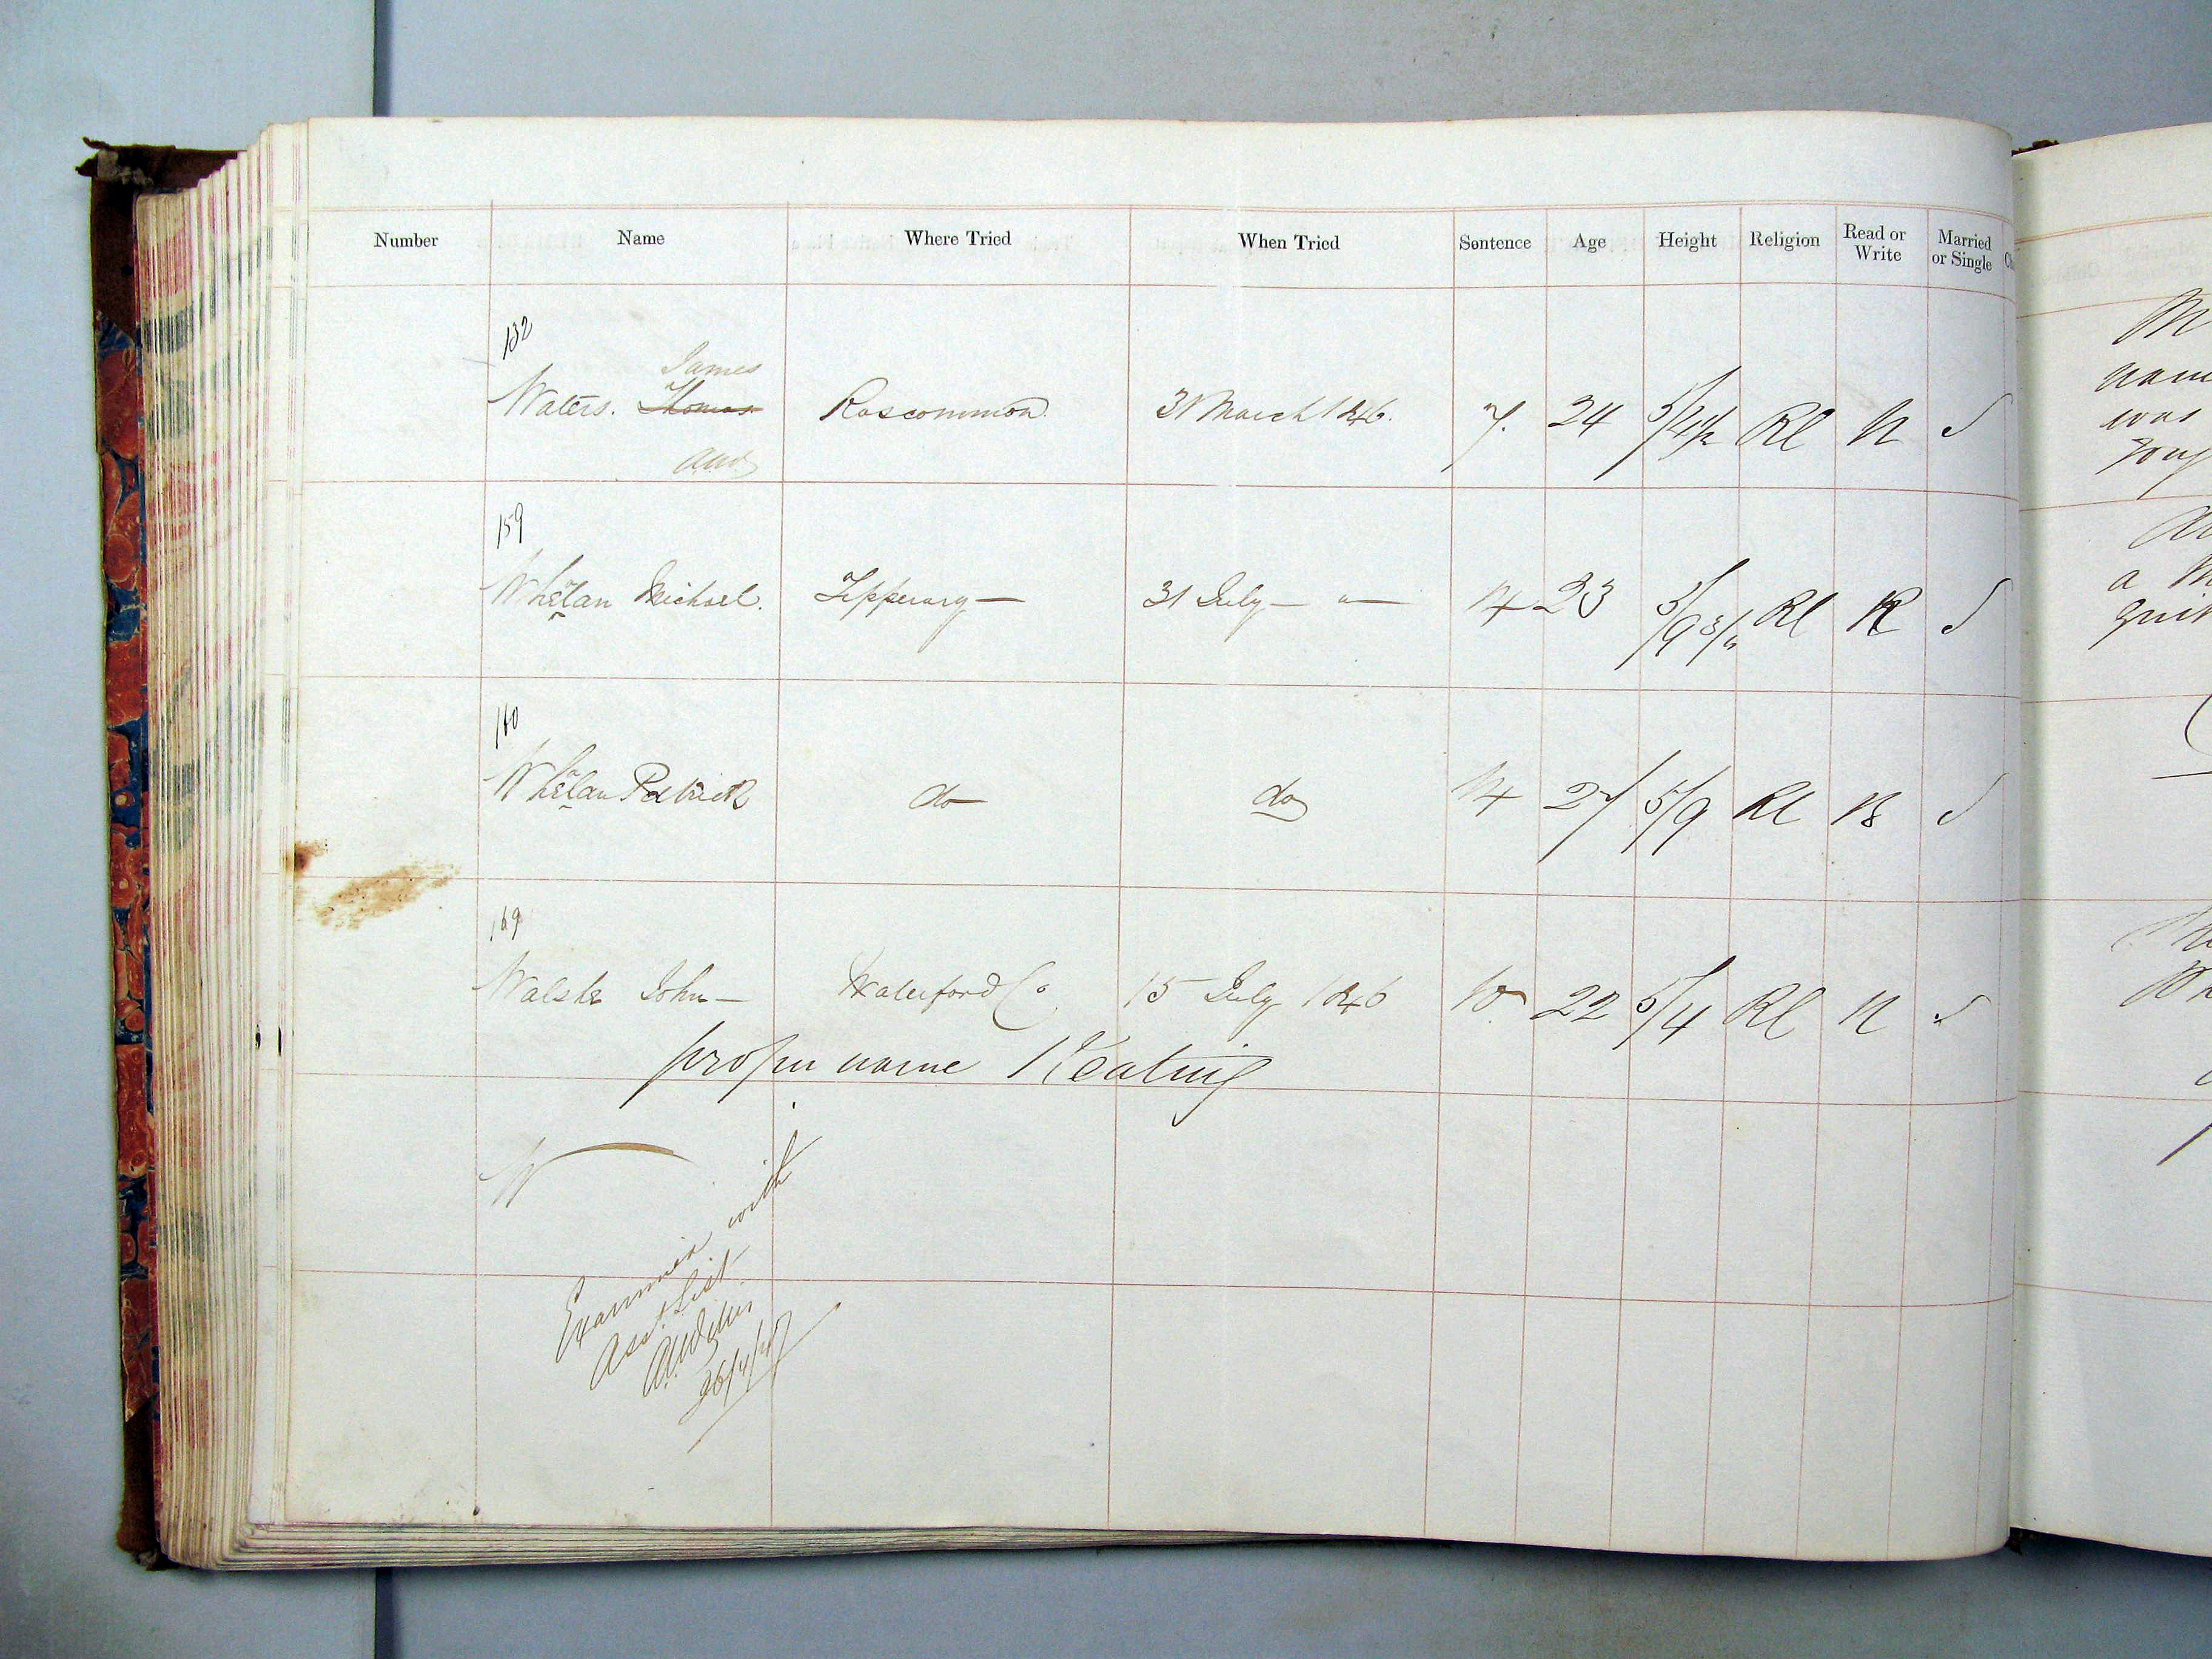 Number Name Where Tried When Tried Sentence Age Height Religion Read or Write Married or Single
132
James
Waters. Thomas Roscommon. 31 March 1846. 7. 24 5/4½ RC N S
159
Whelan Michael. Tipperary — 31 July — " — 14 23 5/9¾ RC R S
160
Whelan Patrick do do 14 27 5/9 RC S
169
Walsh John — Waterford Co. 15 July 1846 10 22 5/4 RC N S
proper name Keating
W
Examined with
Asst. List
26/4/47
M
nam
was
a M
quit